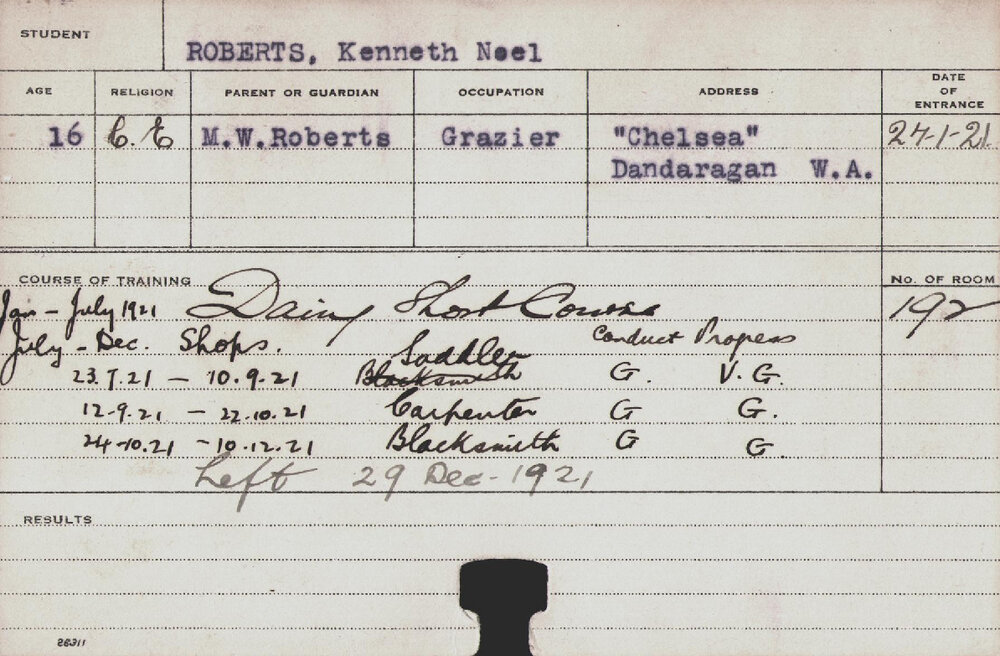 STUDENT
ROBERTS, Kenneth Noel
AGE RELIGION PARENT OR GUARDIAN OCCUPATION ADDRESS DATE OF ENTRANCE
16 C.E M.W.Roberts Grazier "Chelsea" 27-1-21.
Dandaragan W.A.
COURSE OF TRAINING No. OF ROOM
Jan - July 1921 Dairy Short Course 192
July - Dec. Shops. Conduct Progress
Saddler
23.7.21 - 10.9.21 Blacksmith G. V.G.
12-9-21 - 22.10.21 Carpenter G G.
24-10.21 - 10.12.21 Blacksmith G G.
Left 29 Dec-1921
RESULTS
26311